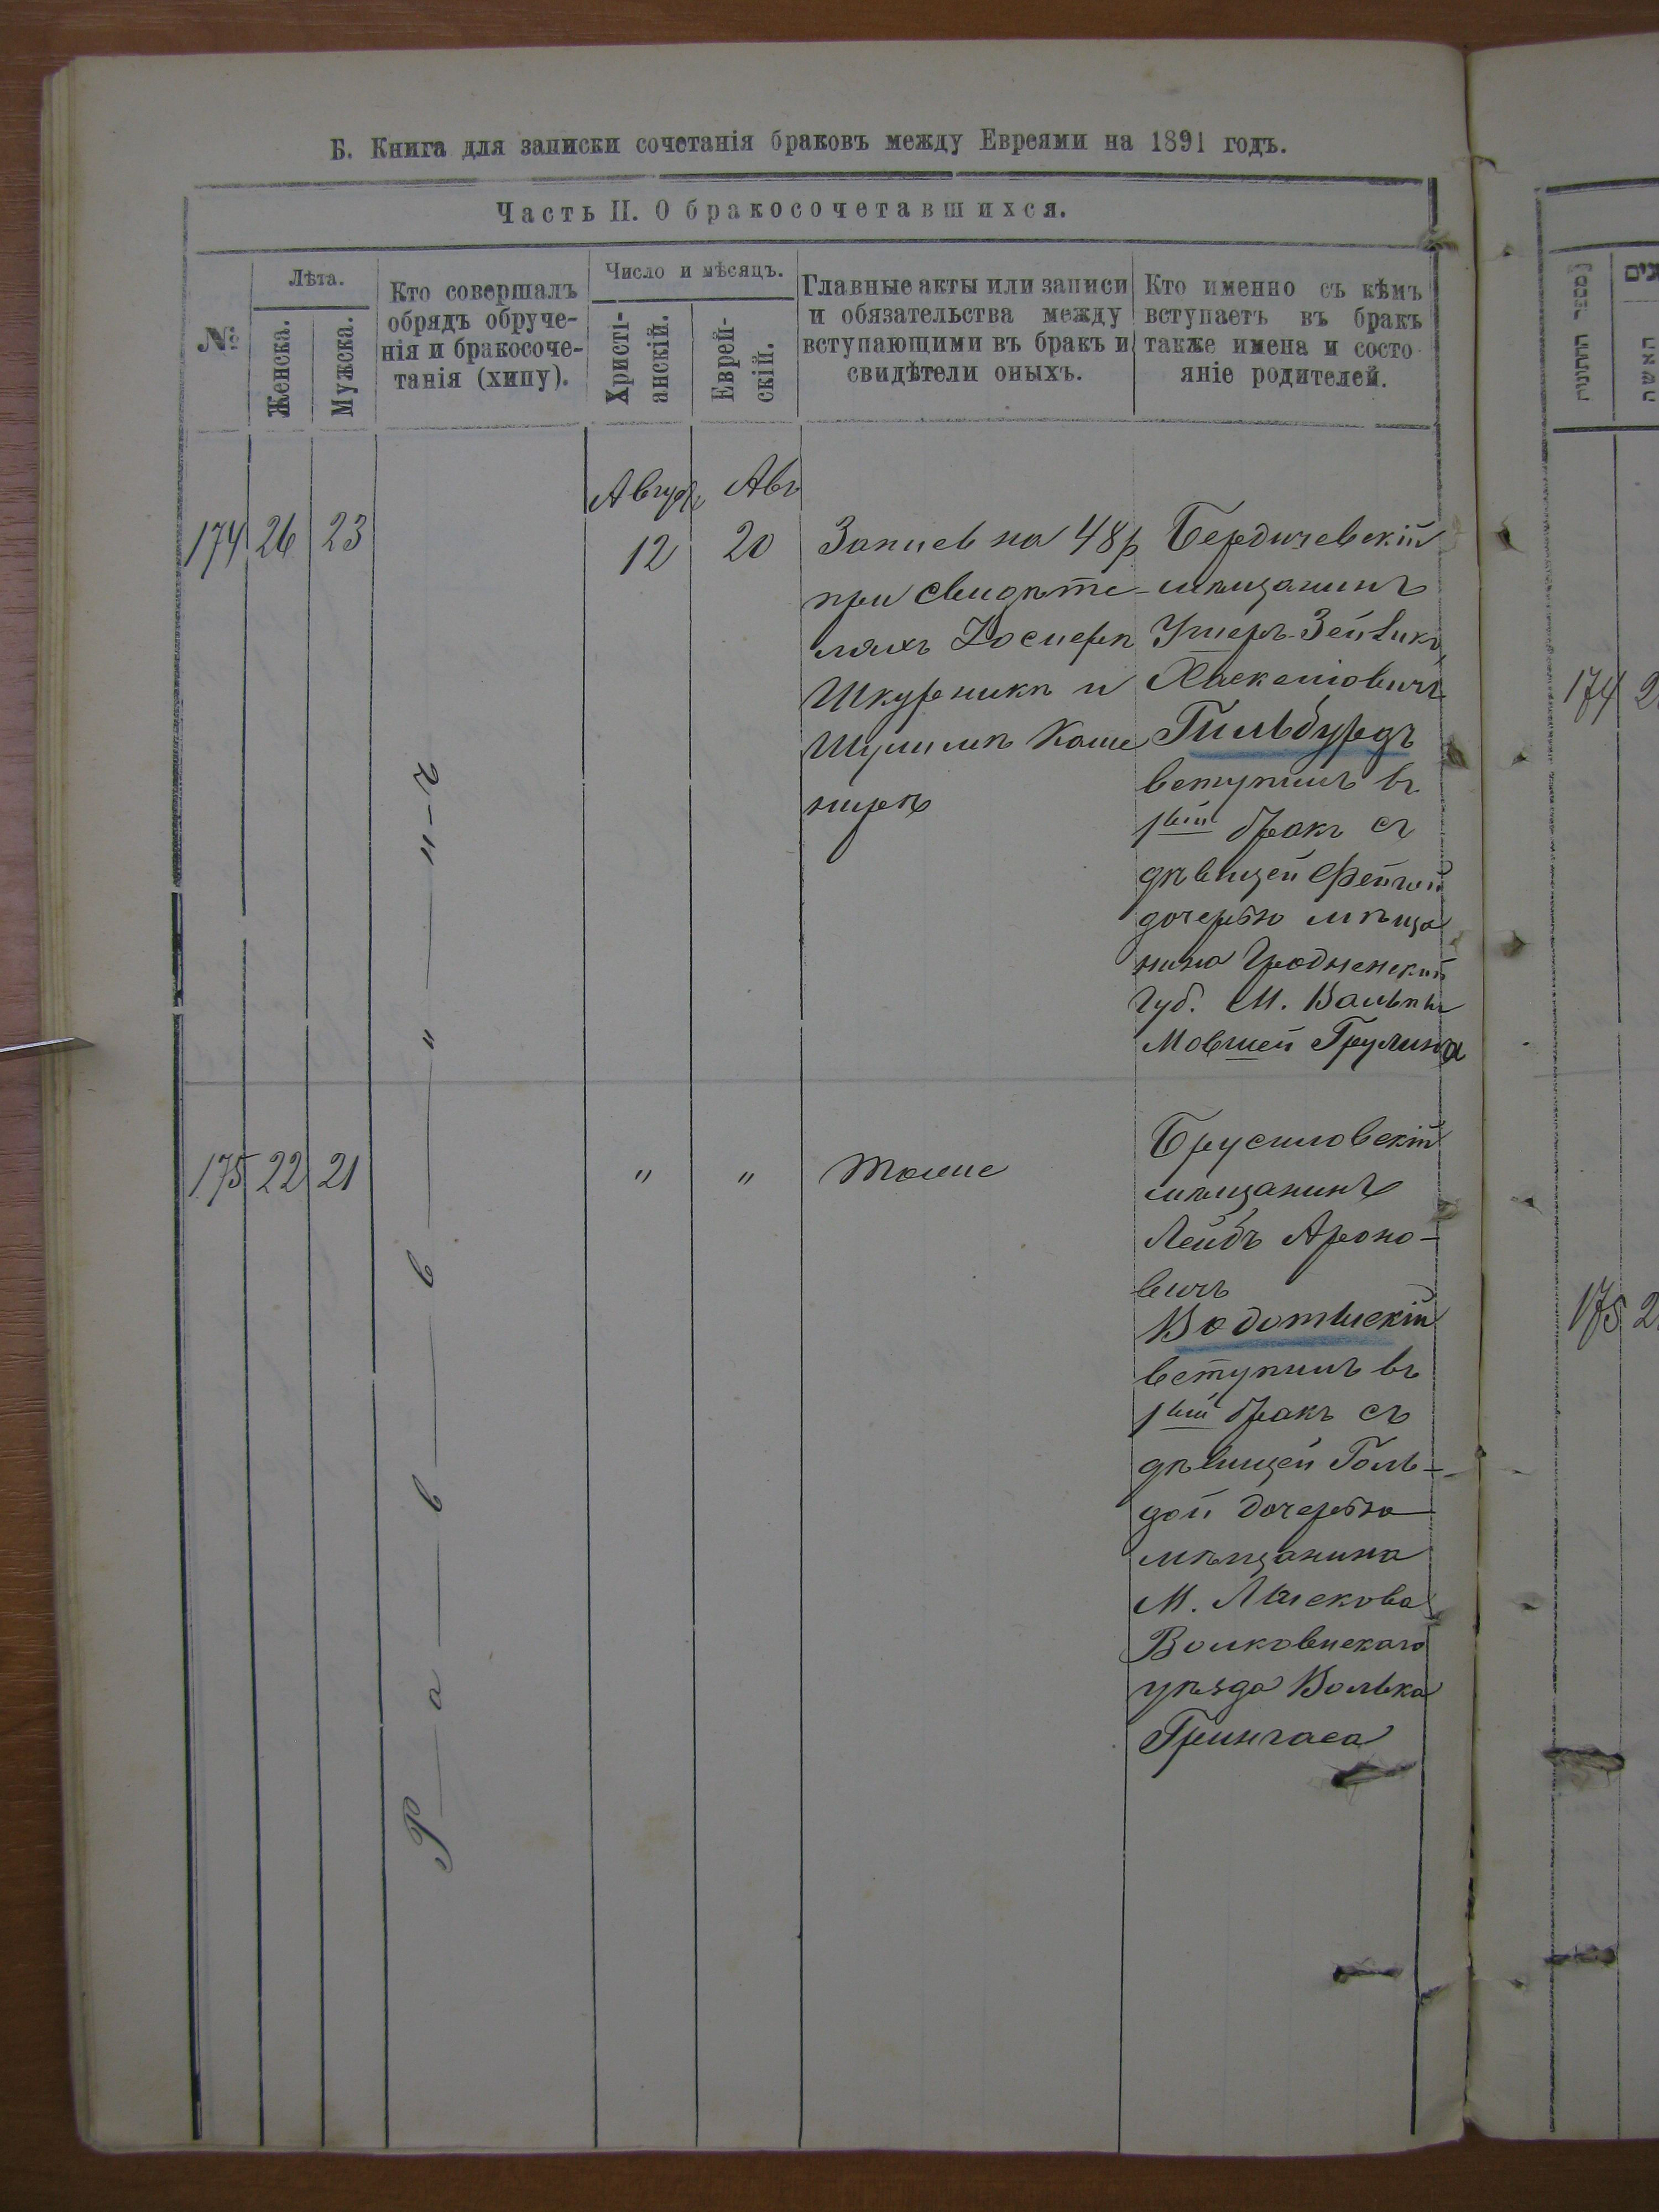 Б. Книга для записки сочетанія браковъ между Евреями на 1891 годъ.
Часть II. О бракосочетавшихся.
№
Лѣта.
Женска.
Мужска.
Кто совершалъ
обрядъ обруче-
нія и бракосоче-
танія (хипу).
Число и мѣсяцъ.
Христі-
анскій.
Еврей-
скій.
Главные акты или записи
и обязательства между
вступающими въ бракъ и
свидѣтели оныхъ.
Кто именно съ кѣмъ
вступаетъ въ бракъ
также имена и состо
яніе родителей.
Август Авъ
174 26 23
12 20
Запись на 48 р
при свидѣте-
ляхъ Іосиферѣ
Шкурникѣ и
Шулимѣ Каме
нирѣ
Бердичевскій
мѣщанинъ
Ушеръ-Зейвикъ
Хаскелiовичъ
Гильбурдъ
вступилъ въ
1вый бракъ съ
дѣвицей Фейгой
дочерью мѣща
нина Гродненской
Губ. М. Вальпы
Мовшей Грулина
175 22 21
" "
тоже
Брусиловскій
мѣщанинъ
Лейбъ Ароно-
вичъ
Водотыскій
вступилъ въ
1вый бракъ съ
дѣвицей Голь-
дой дочерью
мѣщанина
М. Лыскова
Волковискаго
уѣзда Волька
Грингаса
Р—а—в—в—"—"-ъ
174 2
175 2
מספר החתונות
האשה